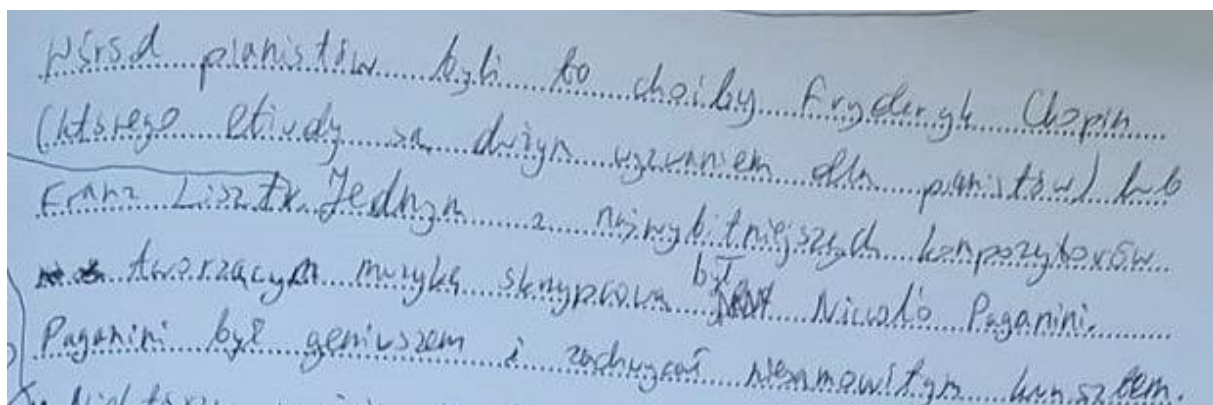 Wśród pianistów byli to choćby Fryderyk Chopin
(którego etiudy są dużym wyzwaniem dla pianistów) lub
Franz Liszt. Jednym z najwybitniejszych kompozytorów
tworzącym muzykę skrzypcową był Niccoló Paganini.
Paganini był geniuszem i zachwycał niesamowitym kunsztem.